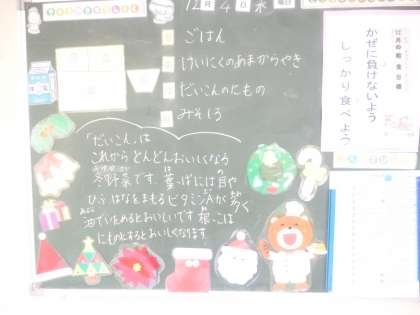 12月4日水曜日
ごはん
けいにくのあまからやき
だいこんのにもの
みそしる
「だいこん」は
これからどんどんおいしくなる
冬野菜です。葉っぱには目や
ひふ、はなをまもるビタミンAが多く
油でいためるとおいしいです。根っこは
にものにするとおいしくなります。
12月の給食目標
かぜに負けないよう
しっかり食べよう